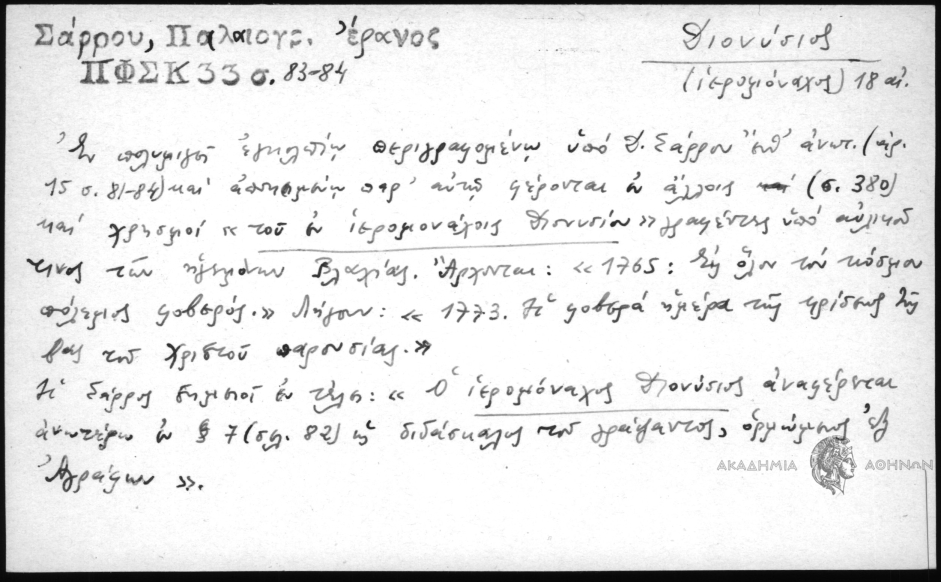 Σάρρου, Παλαιογρ. Ἔρανος
ΠΦΣΚ 33 σ. 83-84
Διονύσιος
(ἱερομόναχος) 18 αἰ.
Ἐν πολυμιγεῖ ἐγκολπίῳ περιγραφομένῳ ὑπό Δ. Σάρρου ἔνθ' ἀνωτ. (ἀρ.
15 σ. 81-84) καί ἀποκειμένῳ παρ' αὐτῷ φέρονται ἐν ἄλλοις (σ. 380)
καί χρησμοί « τοῦ ἐν ἱερομονάχοις Διονυσίου » γραφέντες ὑπό αὐλικοῦ
τινος τῶν ἡγεμόνων Βλαχίας. Ἄρχονται: « 1765: Εἰς ὅλον τόν κόσμον
πόλεμος φοβερός.» Λήγουν: « 1773. Ἡ φοβερά ἡμέρα τῆς κρίσεως
τοῦ Χριστοῦ παρουσίας.»
Ὁ Σάρρος σημειοῖ ἐν τέλει: « Ὁ ἱερομόναχος Διονύσιος ἀναφέρεται
ἀνωτέρω ἐν § 7 (σελ. 82) ὡς διδάσκαλος τοῦ γράψαντος, ὁρμώμενος ἐξ
Ἀγράφων ».
ΑΚΑΔΗΜΙΑ ΑΘΗΝΩΝ